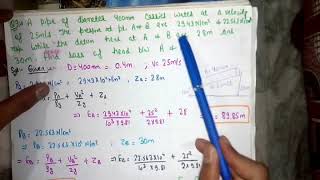 A pipe of diameter 400mm carries water at a velocity
of 25m/s. The pressure at pt. A & B are 29.43 N/cm² & 22.563 N/cm²
while the datum head at A & B are 28m and
30m. loss of head b/w A &
Given: D = 400mm = 0.4m, V = 25m/s
N/cm² = 29.43×10⁴ N/m², Z_A = 28m
+ V_A²/2g + Z_A ⇒ E_A = 29.43×10⁴/10³×9.81 + 25²/2×9.81 = 89.85m
P_B = 22.563 N/cm²
P_B = 22.563×10⁴ N/m², Z_B = 30m
⇒ E_B = P_B/ρg + V_B²/2g + Z_B ⇒ E_B = 22.563×10⁴/10³×9.81 + 25²/2×9.81